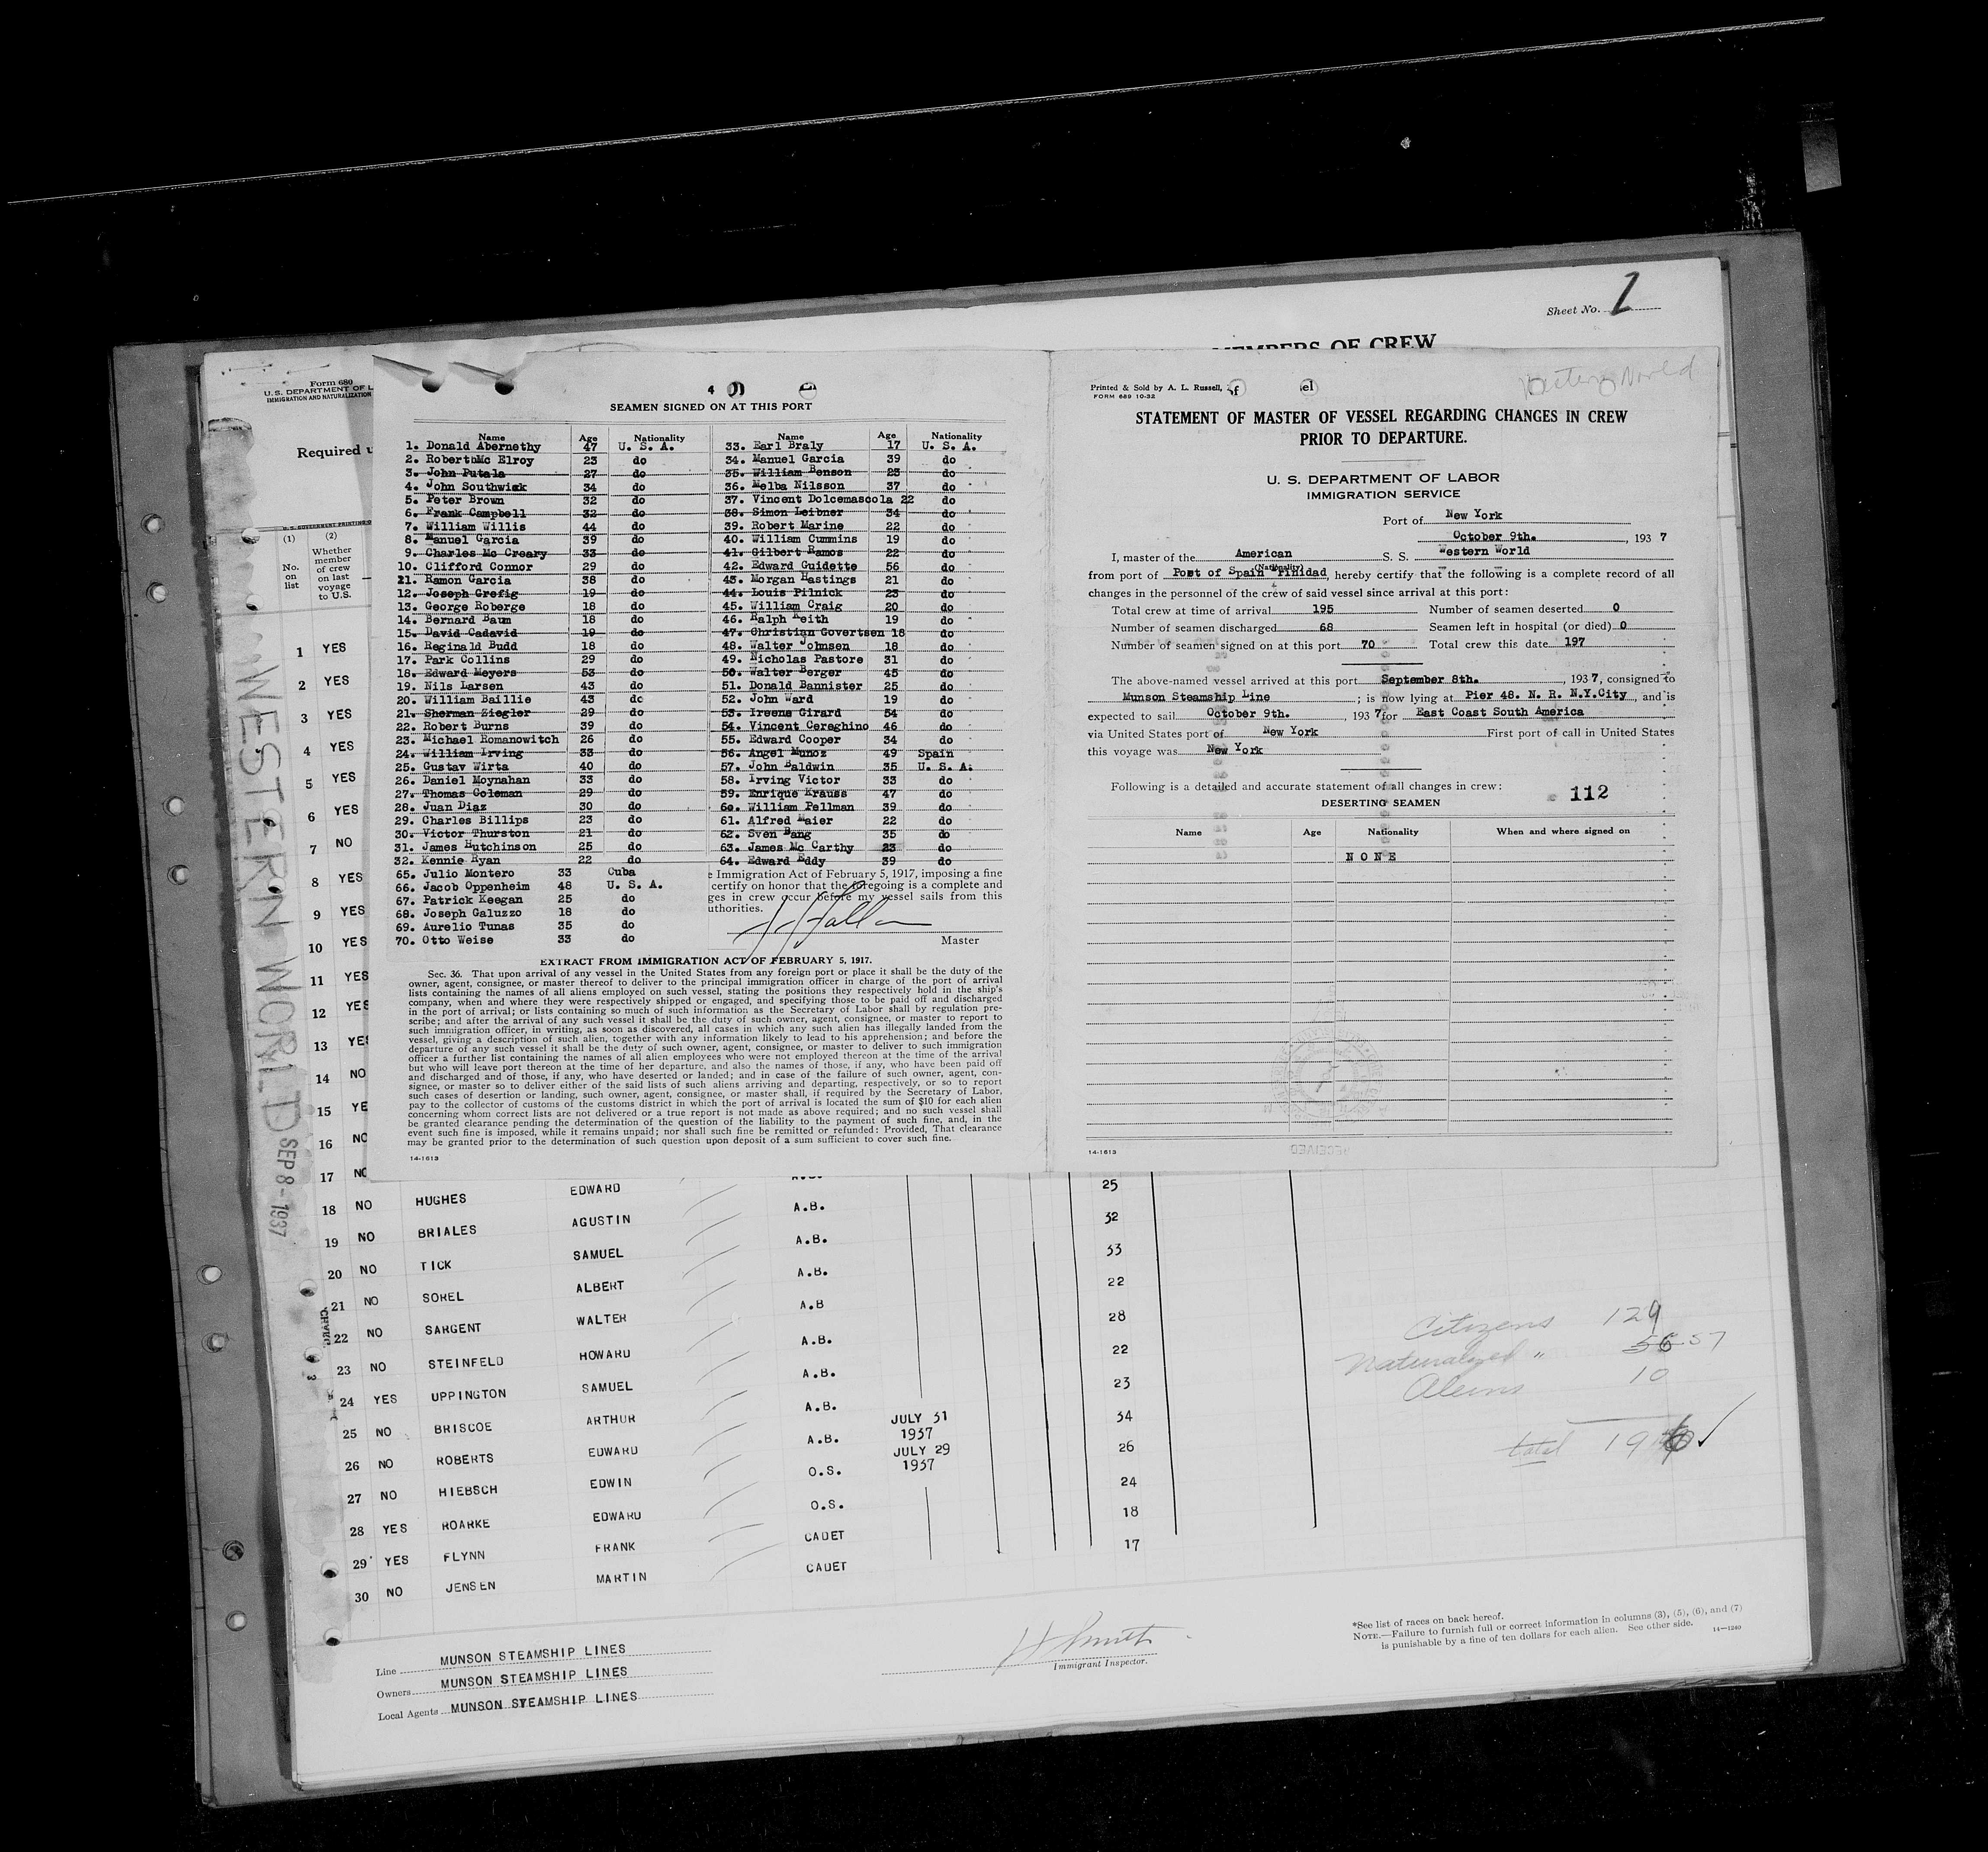 Sheet No. 1
MEMBERS OF CREW
Form 680
U. S. DEPARTMENT OF L
IMMIGRATION AND NATURALIZATION
Required u
U. S. GOVERNMENT PRINTING O
(1) (2)
No. on list
Whether member of crew on last voyage to U.S.
1 YES
2 YES
3 YES
4 YES
5 YES
6 YES
7 NO
8 YES
9 YES
10 YES
11 YES
12 YES
13 YES
14 NO
15 YE
16 NO
17 NO
WESTERN WORLD SEP 8-1937
4
SEAMEN SIGNED ON AT THIS PORT
Name Age Nationality Name Age Nationality
1. Donald Abernethy 47 U. S. A. 33. Earl Braly 17 U. S. A.
2. Robert Mc Elroy 23 do 34. Manuel Garcia 39 do
3. John Putala 27 do 35. William Benson 23 do
4. John Southwick 34 do 36. Melba Nilsson 37 do
5. Peter Brown 32 do 37. Vincent Dolcemascola 22 do
6. Frank Campbell 32 do 38. Simon Leibner 34 do
7. William Willis 44 do 39. Robert Marine 22 do
8. Manuel Garcia 39 do 40. William Cummins 19 do
9. Charles Mc Creary 33 do 41. Gilbert Ramos 22 do
10. Clifford Connor 29 do 42. Edward Guidette 56 do
11. Ramon Garcia 38 do 43. Morgan Hastings 21 do
12. Joseph Grefig 19 do 44. Louis Pilnick 23 do
13. George Roberge 18 do 45. William Craig 20 do
14. Bernard Baum 18 do 46. Ralph Keith 19 do
15. David Cadavid 19 do 47. Christian Govertsen 18 do
16. Reginald Budd 18 do 48. Walter Johnsen 18 do
17. Park Collins 29 do 49. Nicholas Pastore 31 do
18. Edward Meyers 53 do 50. Walter Berger 45 do
19. Nils Larsen 43 do 51. Donald Bannister 25 do
20. William Baillie 43 do 52. John Ward 19 do
21. Sherman Ziegler 29 do 53. Ireene Girard 54 do
22. Robert Burns 39 do 54. Vincent Cereghino 46 do
23. Michael Romanowitch 26 do 55. Edward Cooper 34 do
24. William Irving 33 do 56. Angel Munoz 49 Spain
25. Gustav Wirta 40 do 57. John Baldwin 35 U. S. A.
26. Daniel Moynahan 33 do 58. Irving Victor 33 do
27. Thomas Coleman 29 do 59. Enrique Krauss 47 do
28. Juan Diaz 30 do 60. William Pellman 39 do
29. Charles Billips 23 do 61. Alfred Maier 22 do
30. Victor Thurston 21 do 62. Sven Bang 35 do
31. James Hutchinson 25 do 63. James Mc Carthy 23 do
32. Kennie Ryan 22 do 64. Edward Eddy 39 do
65. Julio Montero 33 Cuba
66. Jacob Oppenheim 48 U. S. A.
67. Patrick Keegan 25 do
68. Joseph Galuzzo 18 do
69. Aurelio Tunas 35 do
70. Otto Weise 33 do
e Immigration Act of February 5, 1917, imposing a fine
certify on honor that the foregoing is a complete and
ges in crew occur before my vessel sails from this
uthorities.
Master
EXTRACT FROM IMMIGRATION ACT OF FEBRUARY 5, 1917.
Sec. 36. That upon arrival of any vessel in the United States from any foreign port or place it shall be the duty of the
owner, agent, consignee, or master thereof to deliver to the principal immigration officer in charge of the port of arrival
lists containing the names of all aliens employed on such vessel, stating the positions they respectively hold in the ship's
company, when and where they were respectively shipped or engaged, and specifying those to be paid off and discharged
in the port of arrival; or lists containing so much of such information as the Secretary of Labor shall by regulation pre-
scribe; and after the arrival of any such vessel it shall be the duty of such owner, agent, consignee, or master to report to
such immigration officer, in writing, as soon as discovered, all cases in which any such alien has illegally landed from the
vessel, giving a description of such alien, together with any information likely to lead to his apprehension; and before the
departure of any such vessel it shall be the duty of such owner, agent, consignee, or master to deliver to such immigration
officer a further list containing the names of all alien employees who were not employed thereon at the time of the arrival
but who will leave port thereon at the time of her departure, and also the names of those, if any, who have been paid off
and discharged and of those, if any, who have deserted or landed; and in case of the failure of such owner, agent, con-
signee, or master so to deliver either of the said lists of such aliens arriving and departing, respectively, or so to report
such cases of desertion or landing, such owner, agent, consignee, or master shall, if required by the Secretary of Labor,
pay to the collector of customs of the customs district in which the port of arrival is located the sum of $10 for each alien
concerning whom correct lists are not delivered or a true report is not made as above required; and no such vessel shall
be granted clearance pending the determination of the question of the liability to the payment of such fine, and, in the
event such fine is imposed, while it remains unpaid; nor shall such fine be remitted or refunded: Provided, That clearance
may be granted prior to the determination of such question upon deposit of a sum sufficient to cover such fine.
14-1613
Western World
Printed & Sold by A. L. Russell,
FORM 689 10-32
STATEMENT OF MASTER OF VESSEL REGARDING CHANGES IN CREW
PRIOR TO DEPARTURE.
U. S. DEPARTMENT OF LABOR
IMMIGRATION SERVICE
Port of New York
October 9th. , 193 7
I, master of the American S. S. Western World
(Nationality)
from port of Port of Spain Trinidad, hereby certify that the following is a complete record of all
changes in the personnel of the crew of said vessel since arrival at this port:
Total crew at time of arrival 195 Number of seamen deserted 0
Number of seamen discharged 68 Seamen left in hospital (or died) 0
Number of seamen signed on at this port 70 Total crew this date 197
The above-named vessel arrived at this port September 8th. , 193 7, consigned to
Munson Steamship Line ; is now lying at Pier 48. N. R. N.Y.City , and is
expected to sail October 9th. , 193 7 for East Coast South America
via United States port of New York First port of call in United States
this voyage was New York
Following is a detailed and accurate statement of all changes in crew: 112
DESERTING SEAMEN
Name Age Nationality When and where signed on
N O N E
RECEIVED
14-1613
25
18 NO HUGHES EDWARD A.B. 32
19 NO BRIALES AGUSTIN A.B. 33
20 NO TICK SAMUEL A.B. 22
21 NO SOREL ALBERT A.B 28
22 NO SARGENT WALTER A.B. 22
23 NO STEINFELD HOWARD A.B. 23
24 YES UPPINGTON SAMUEL A.B. 34
25 NO BRISCOE ARTHUR A.B. JULY 31 1937 26
26 NO ROBERTS EDWARD O.S. JULY 29 1937 24
27 NO HIEBSCH EDWIN O.S. 18
28 YES ROARKE EDWARD CADET 17
29 YES FLYNN FRANK CADET
30 NO JENSEN MARTIN
Citizens 129
Naturalized " 56 57
Aliens 10
total 196
Line MUNSON STEAMSHIP LINES
Owners MUNSON STEAMSHIP LINES
Local Agents MUNSON STEAMSHIP LINES
H Smith
Immigrant Inspector.
*See list of races on back hereof.
NOTE.—Failure to furnish full or correct information in columns (3), (5), (6), and (7)
is punishable by a fine of ten dollars for each alien. See other side. 14—1240